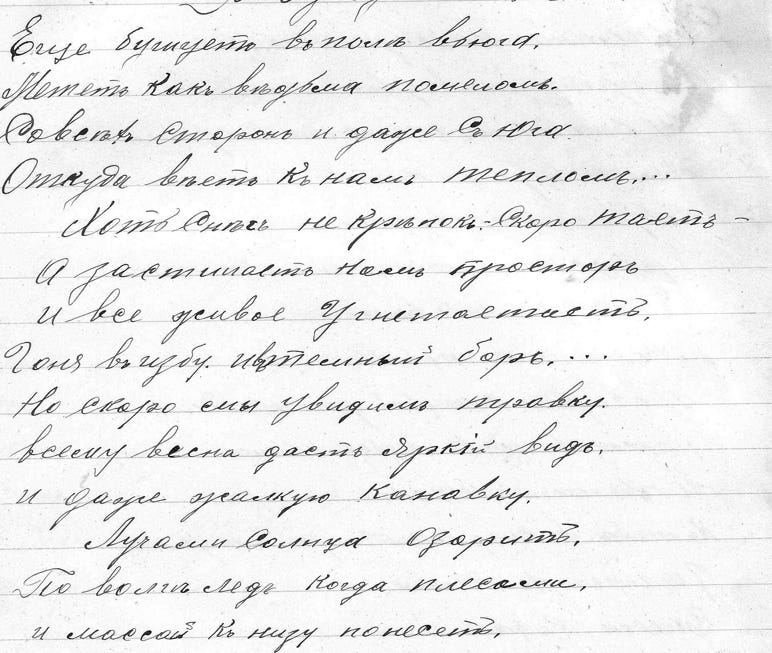 Еще бушуетъ въ полѣ вьюга,
Мететъ какъ вѣдьма помеломъ.
Со всѣхъ сторонъ и даже съ юга
Откуда вѣетъ къ намъ тепломъ,...
Хоть снѣгъ не крѣпокъ: скоро таетъ –
А застилаетъ намъ просторъ
и все живое угнетаетъ,
Гоня въ избу. и въ темный боръ,...
Но скоро мы увидимъ травку.
всему весна дастъ яркій видъ,
и даже жалкую канавку.
Лучами солнца озоритъ,
По волгѣ ледъ когда плесами,
и массой къ низу понесетъ,